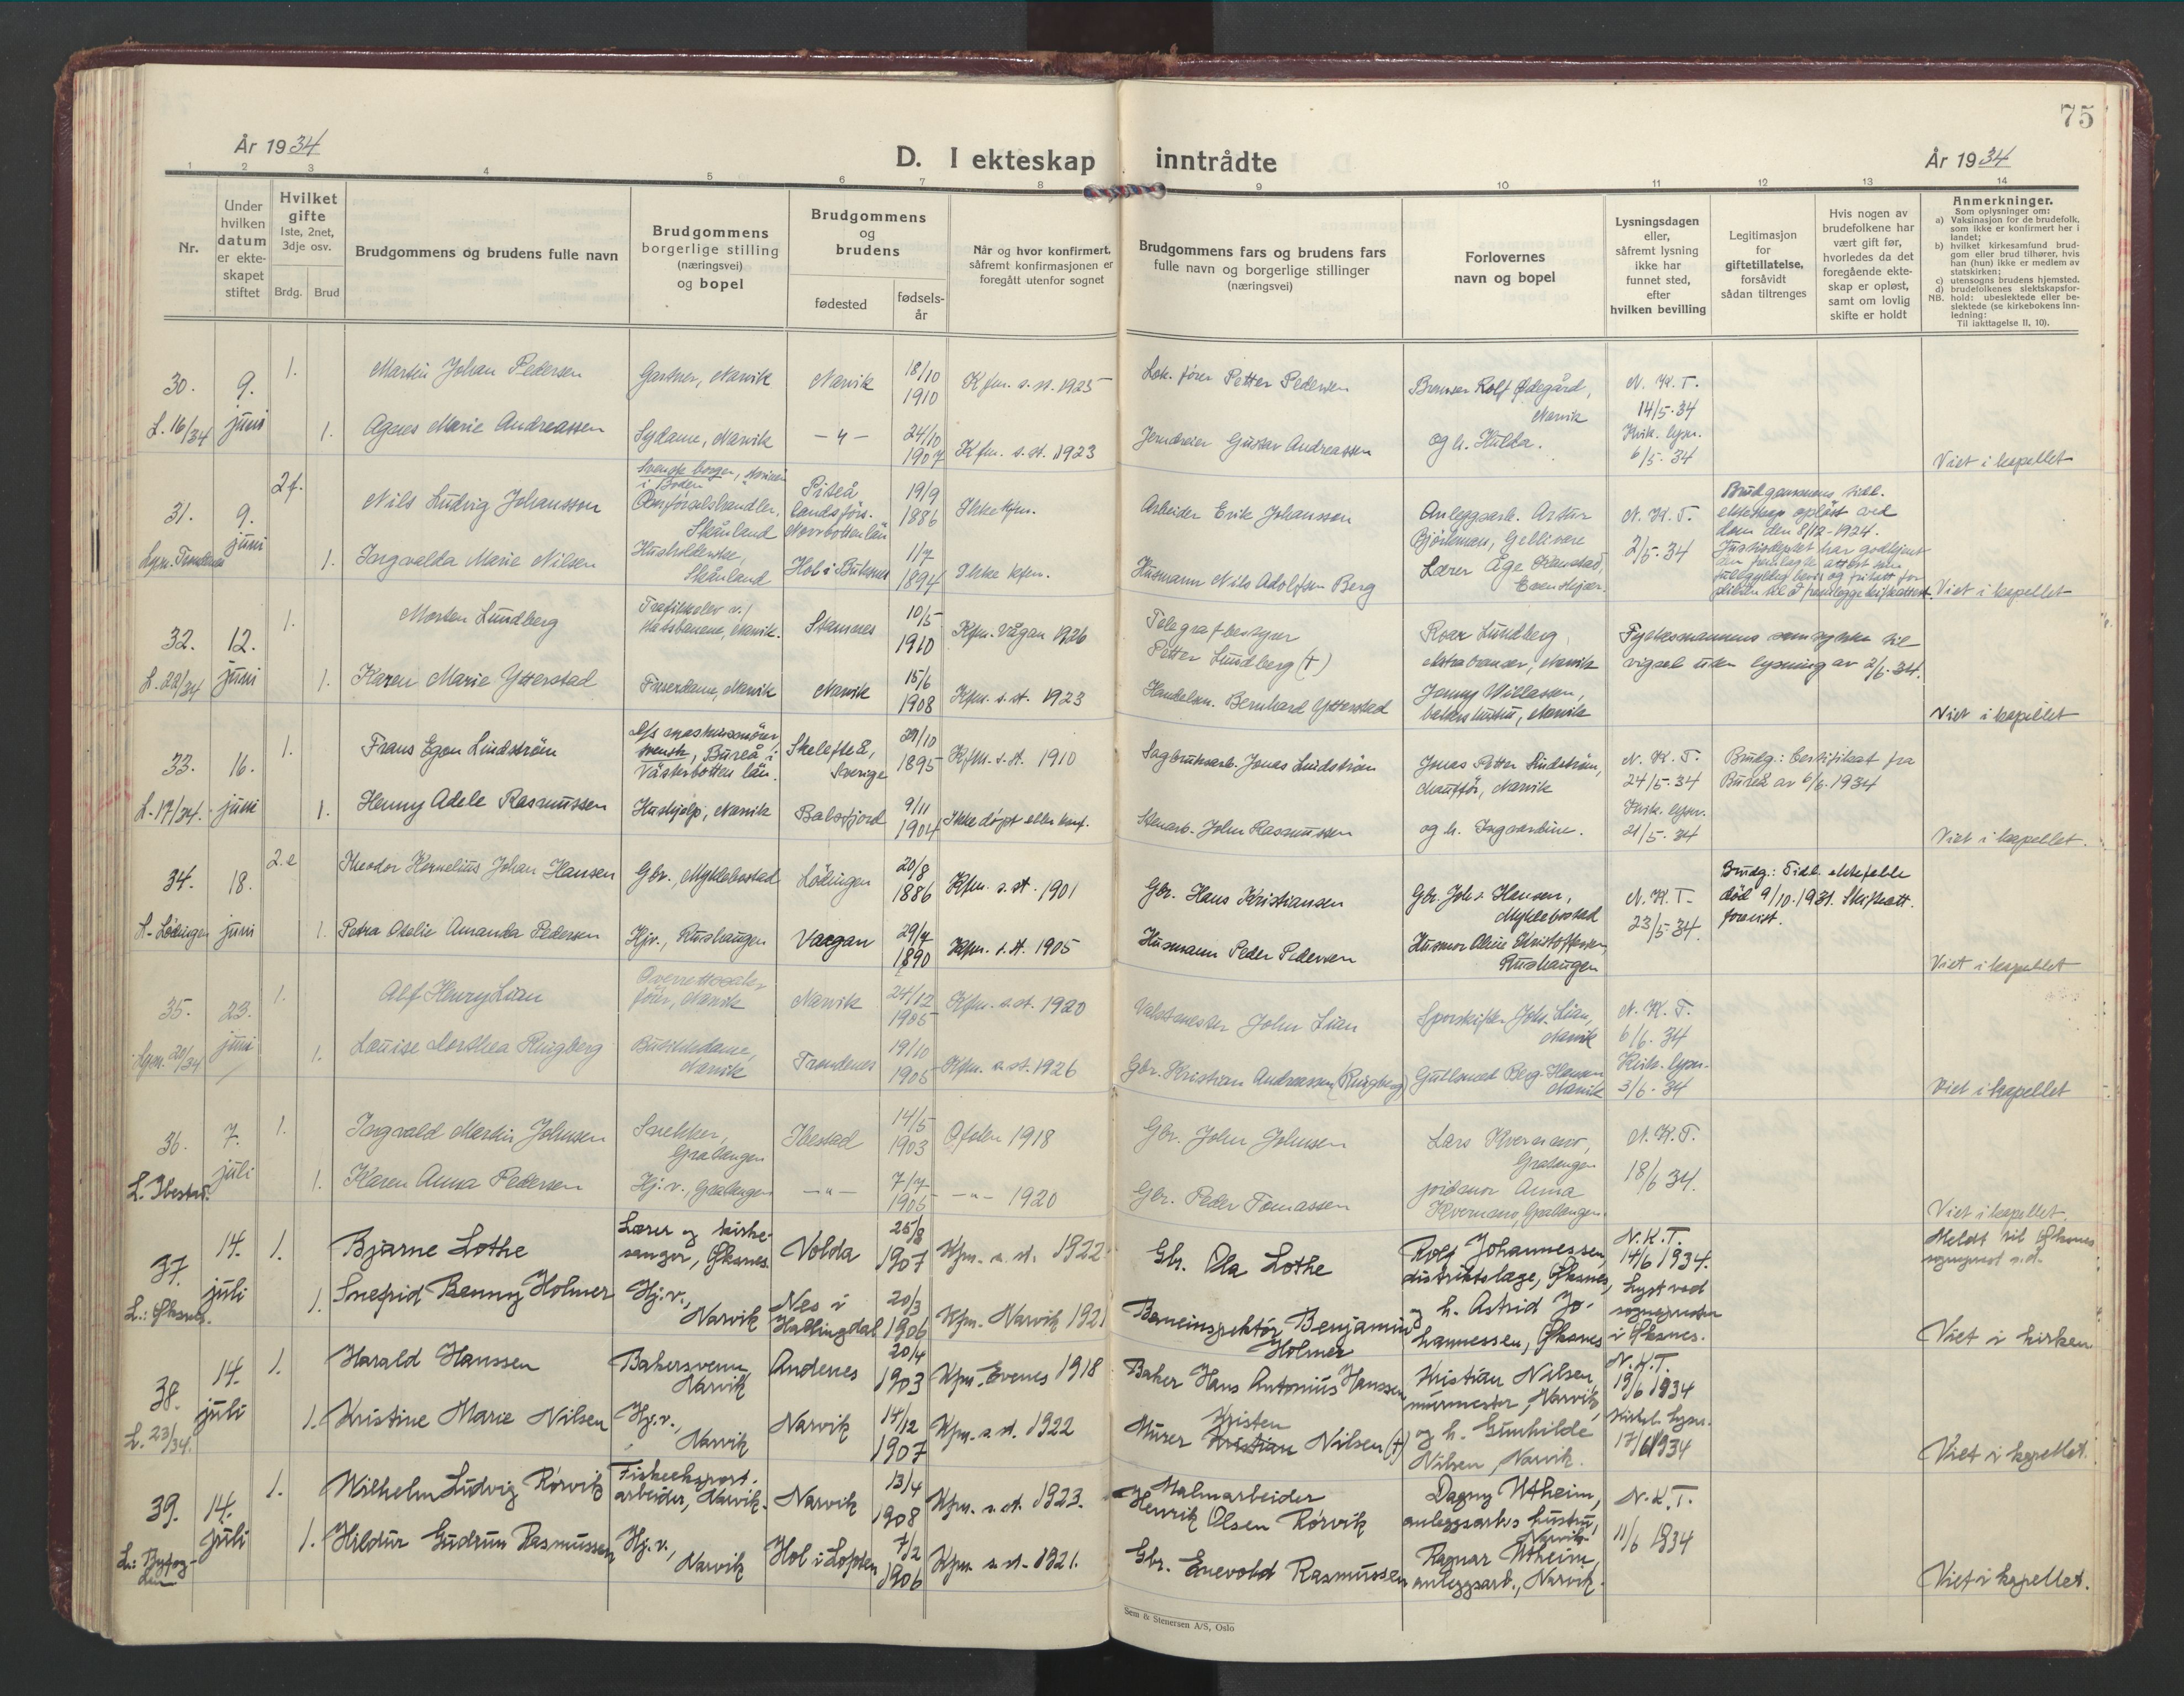 75
År 1934
D. I ekteskap inntrådte
År 1934
1 2 3 4 5 6 7 8 9 10 11 12 13 14
Nr.
Under hvilken datum er ekteskapet stiftet
Hvilket gifte
1ste, 2net, 3dje osv.
Brdg. Brud
Brudgommens og brudens fulle navn
Brudgommens borgerlige stilling (næringsvei) og bopel
Brudgommens og brudens
fødested
fødsels-år
Når og hvor konfirmert,
såfremt konfirmasjonen er
foregått utenfor sognet
Brudgommens fars og brudens fars
fulle navn og borgerlige stillinger
(næringsvei)
Forlovernes
navn og bopel
Lysningsdagen
eller,
såfremt lysning
ikke har
funnet sted,
efter
hvilken bevilling
Legitimasjon
for
giftetillatelse,
forsåvidt
sådan tiltrenges
Hvis nogen av
brudefolkene har
vært gift før,
hvorledes da det
foregående ekte-
skap er opløst,
samt om lovlig
skifte er holdt
Anmerkninger.
Som oplysninger om:
a) Vaksinasjon for de brudefolk,
som ikke er konfirmert her i
landet;
b) hvilket kirkesamfund brud-
gom eller brud tilhører, hvis
han (hun) ikke er medlem av
statskirken;
c) utensogns brudens hjemsted.
d) brudefolkenes slektskapsfor-
NB. hold: ubeslektede eller be-
slektede (se kirkebokens inn-
ledning:
Til iakttagelse II, 10).
30. 9. juni 1. Martin Johan Pedersen Gartner, Narvik Narvik 18/10 1910 Kfm. s. st. 1925 Lok. fører Petter Pedersen Bremser Rolf Ødegård, Narvik N. K. T. 14/5-34
L. 16/34 1. Agnes Marie Andreassen Sydame, Narvik — " — 24/10 1907 Kfm. s. st. 1923 Jerndreier Gustav Andreassen og h. Hulda. Kirk. lysn. 6/5-34 Viet i kapellet
31. 9. juni 2 f. Nils Ludvig Johansson Svensk borger, i Boden Skånland Piteå landsförs. Norrbotten län 19/9 1886 Ikke kfm. Arbeider Erik Johansson Anleggsarb. Artur Björkman, Gellivare N. K. T. 2/5-34 Brudgommens tidl. ekteskap opløst ved dom den 8/12-1924.
1. Ingvalda Marie Nilsen Husholderske, Skånland Hol i Buksnes 1/7 1894 Ikke kfm. Husmann Nils Adolfsen Berg Lærer Åge Evenskjær. Justisdeptet har godkjent den fremlagte attest som fullgyldig bevis og fritatt for plikten til å fremlegge skifteattest. Viet i kapellet
32. 12. juni 1. Morten Lundberg Trafikkelev v/ statsbanene, Narvik. Stamnes 10/5 1910 Kfm. Vågan 1926 Telegrafbestyrer Petter Lundberg (†) Roar Lundberg, ekstrabremser, Narvik Fylkesmannens samtykke til vigsel uten lysning av 2/6-34.
L. 22/34 1. Karen Marie Ytterstad Frisérdame, Narvik Narvik 15/6 1908 Kfm. s. st. 1923 Handelsm. Bernhard Ytterstad Jenny Willassen, bakers hustru, Narvik Viet i kapellet
33. 16. juni 1. Frans Egon Lindström svensk, Bureå i Västerbotten län. Skelefteå, Sverige 29/10 1895 Kfm. s. st. 1910 Sagbruksarb. Jonas Lindström Jonas Petter Lindström, chauffør, Narvik N. K. T. 24/5-34 Brudg.: Certifikat fra Bureå av 6/6-1934
L. 17/34. 1. Henny Adele Rasmussen Hushjelp, Narvik Balsfjord 9/11 1904 Ikke døpt eller konf. Stenarb. John Rasmussen og h. Ingvardine. Kirk. lysn. 21/5-34 Viet i kapellet.
34. 18. juni 2.e Theodor Kornelius Johan Hansen Gbr., Myklebostad Lødingen 20/8 1886 Kfm. s. st. 1901 Gbr. Hans Kristiansen Gbr. Johs Hansen, Myklebostad N. K. T. 23/5-34. Brudg.: Tidl. ektefelle død 9/10.1931. Skifteatt. forevist.
L. Lødingen 1. Petra Otelie Amanda Pedersen Hjv., Rushaugen Vaagan 29/7 1890 Kfm. s. st. 1905 Husmann Peder Pedersen Husmor Aline Kristoffersen, Rushaugen Viet i kapellet
35. 23. juni 1. Alf Henry Lian Overrettssakfører, Narvik Narvik 24/12 1905 Kfm. s. st. 1920 Vaktmester John Lian Sporskifter Johs. Lian, Narvik N. K. T. 6/6-34
Lysn. 20/34 1. Louise Dorthea Ringberg Butikkdame, Narvik Trondenes 19/10 1905 Kfm. s. st. 1926 Gbr. Kristian Andreassen (Ringberg) Gullsmed Berg-Hansen Narvik Kirk. lysn. 3/6-34 Viet i kapellet
36. 7. juli 1. Ingvald Martin Johnsen Snekker, Gratangen Ibestad 14/5 1903 Ofoten 1918 Gbr. John Johnsen Lars Kvernmo, Gratangen N. K. T. 18/6 34.
L. Ibestad. 1. Karen Anna Pedersen Hj. v., Gratangen — " — 7/7 1905 — " — 1920 Gbr. Peder Tomassen jordmor Anna Kvernmo, Gratangen. Viet i kapellet.
37. 14. juli 1. Bjarne Lothe Lærer og kirkesanger, Øksnes. Volda 25/8 1907 Kfm. s. st. 1922 Gbr. Ola Lothe Rolf Johannessen, distriktslæge, Øksnes, N. K. T. 14/6 1934. Meldt til Øksnes sogneprest s.d.
L.: Øksnes. 1. Snefrid Benny Holmer Hj. v., Narvik Nes i Hallingdal 20/3 1906 Kfm. Narvik 1921 Baneinspektør Benjamin Holmer og h. Astrid Johannessen, Øksnes Lyst ved sognepresten i Øksnes. Viet i kirken
38. 14. juli 1. Harald Hanssen Bakersvenn, Narvik Andenes 20/4 1903 Kfm. Evenes 1918 Baker Hans Antonius Hanssen Kristian Nilsen, murmester, Narvik, N. K. T. 19/6 1934
L. 23/34. 1. Kristine Marie Nilsen Hj. v., Narvik Narvik 14/12 1907 Kfm. s. st. 1922 Murer Kristen Nilsen (†) og h. Gunhilde Nilsen, Narvik. Kirkel. lysn. 17/6 1934 Viet i kapellet.
39. 14. juli 1. Wilhelm Ludvig Rørvik Fiskeeksport-arbeider, Narvik. Narvik 13/4 1908 Kfm. s. st. 1923. Malmarbeider Henrik Olsen Rørvik Dagny Utheim, anleggsarb.s hustru, Narvik N. K. T. 11/6 1934
L.: Byfogden 1. Hildur Gudrun Rasmussen Hj. v., Narvik Hol i Lofoten 7/2 1906 Kfm. s. st. 1921. Gbr. Enevold Rasmussen Ragnar Utheim, anleggsarb., Narvik. Viet i kapellet.
Sem & Stenersen A/S, Oslo